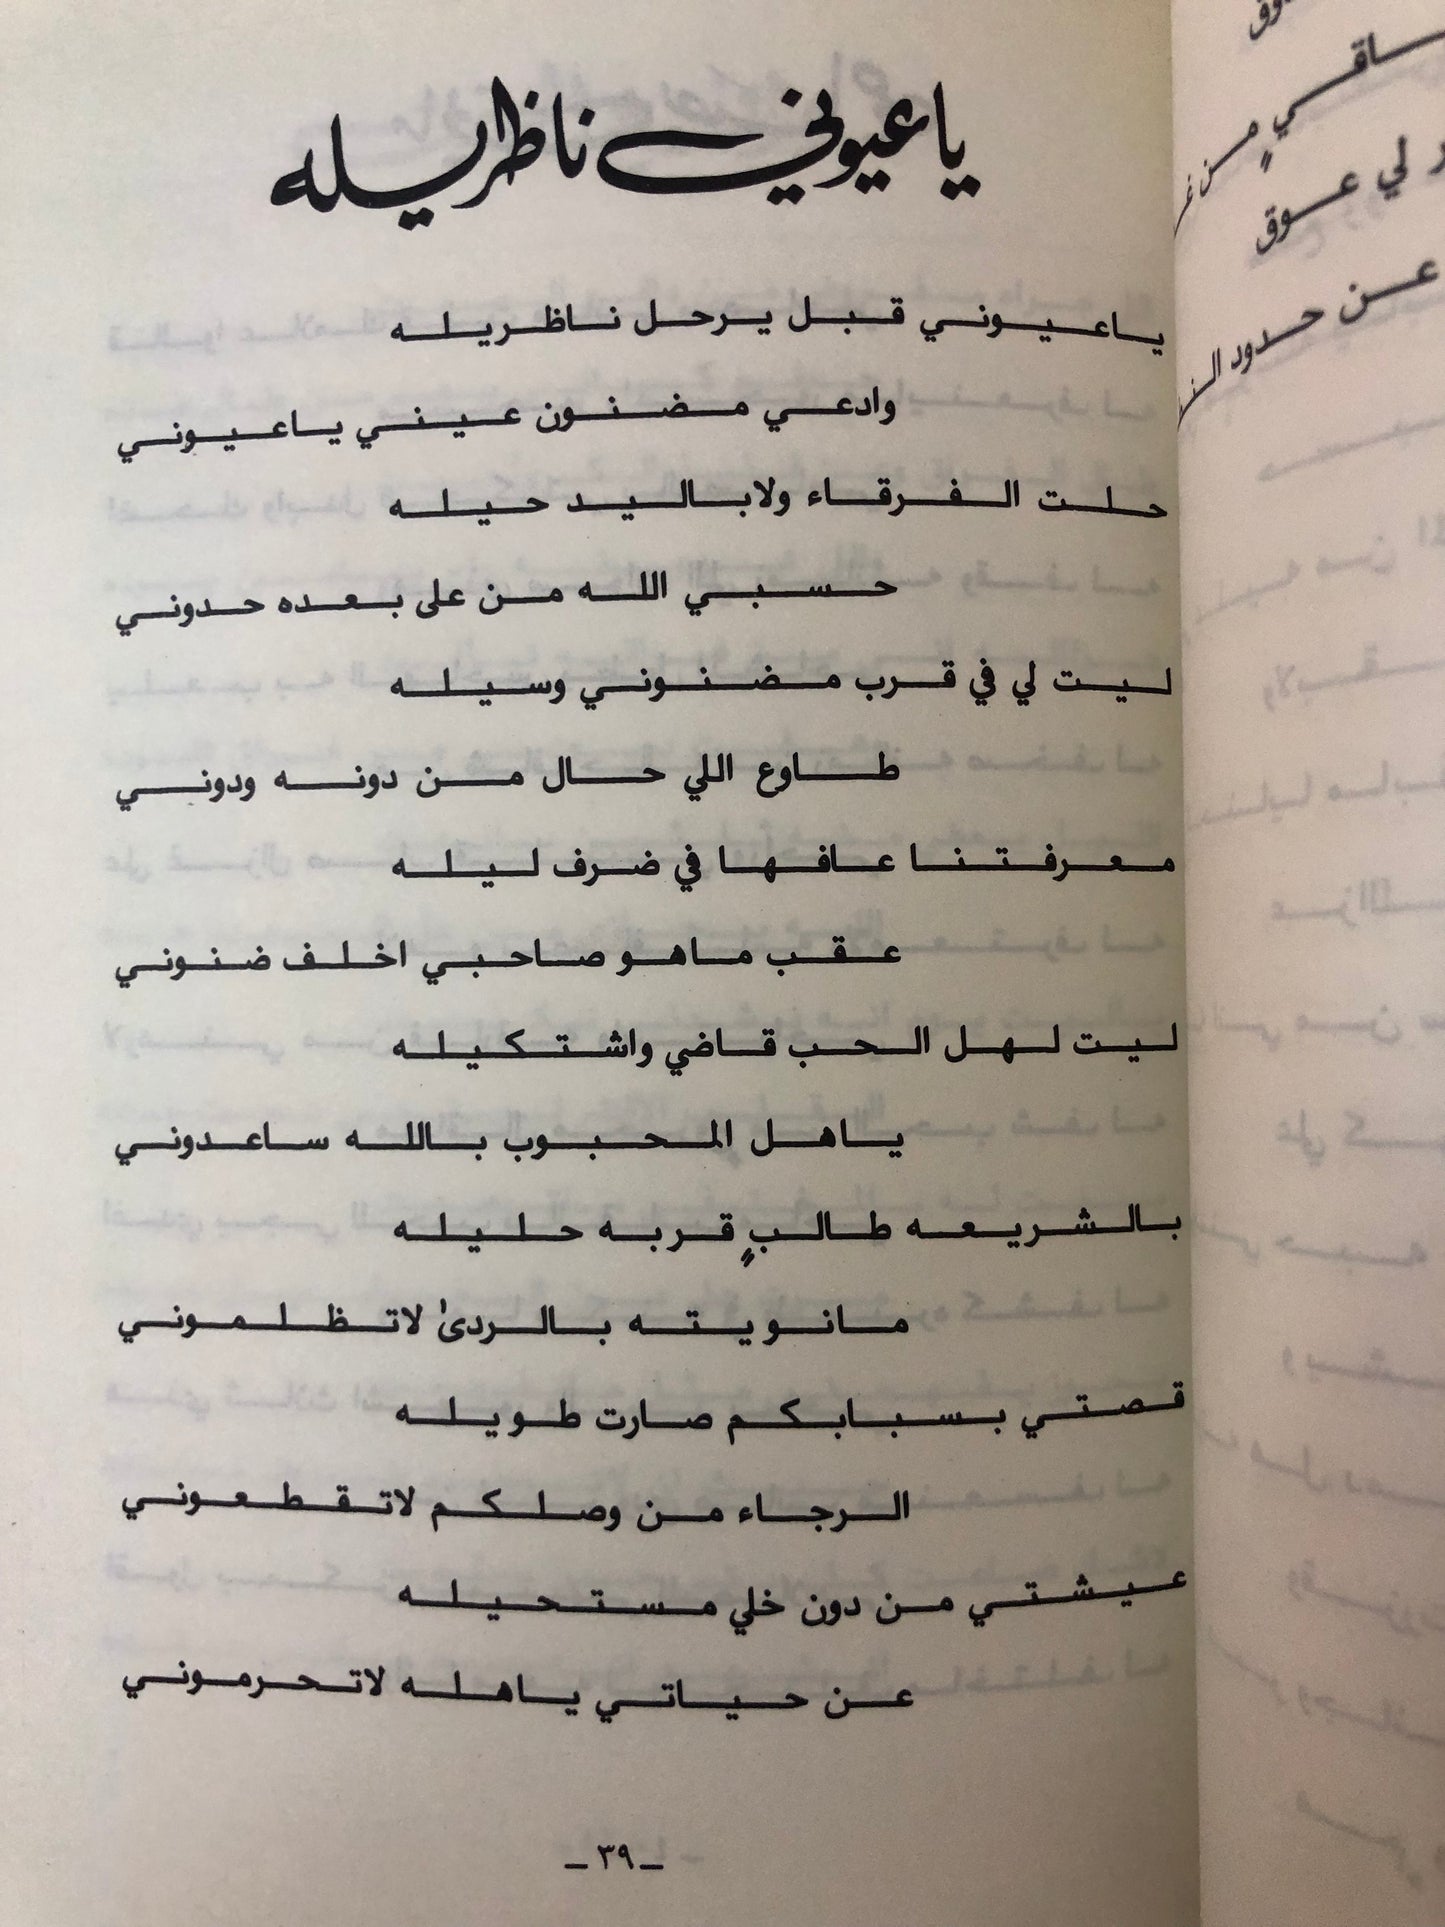 ياعيوني ناظريله
ياعيوني قبل يرحل ناظريله
وادعي مضنون عيني ياعيوني
حلت الفرقاء ولاباليد حيله
حسبي الله من على بعده حدوني
ليت لي في قرب مضنوني وسيله
طاوع اللي حال من دونه ودوني
معرفتنا عافها في ضرف ليله
عقب ماهو صاحبي اخلف ضنوني
ليت لهل الحب قاضي واشتكيله
ياهل المحبوب بالله ساعدوني
بالشريعه طالبٍ قربه حليله
مانويته بالردىٰ لاتظلموني
قصتي بسبابكم صارت طويله
الرجاء من وصلكم لاتقطعوني
عيشتي من دون خلي مستحيله
عن حياتي ياهله لاتحرموني
ـ ٣٩ ـ
ـاقيٍ من
لي عوق
عن حدود